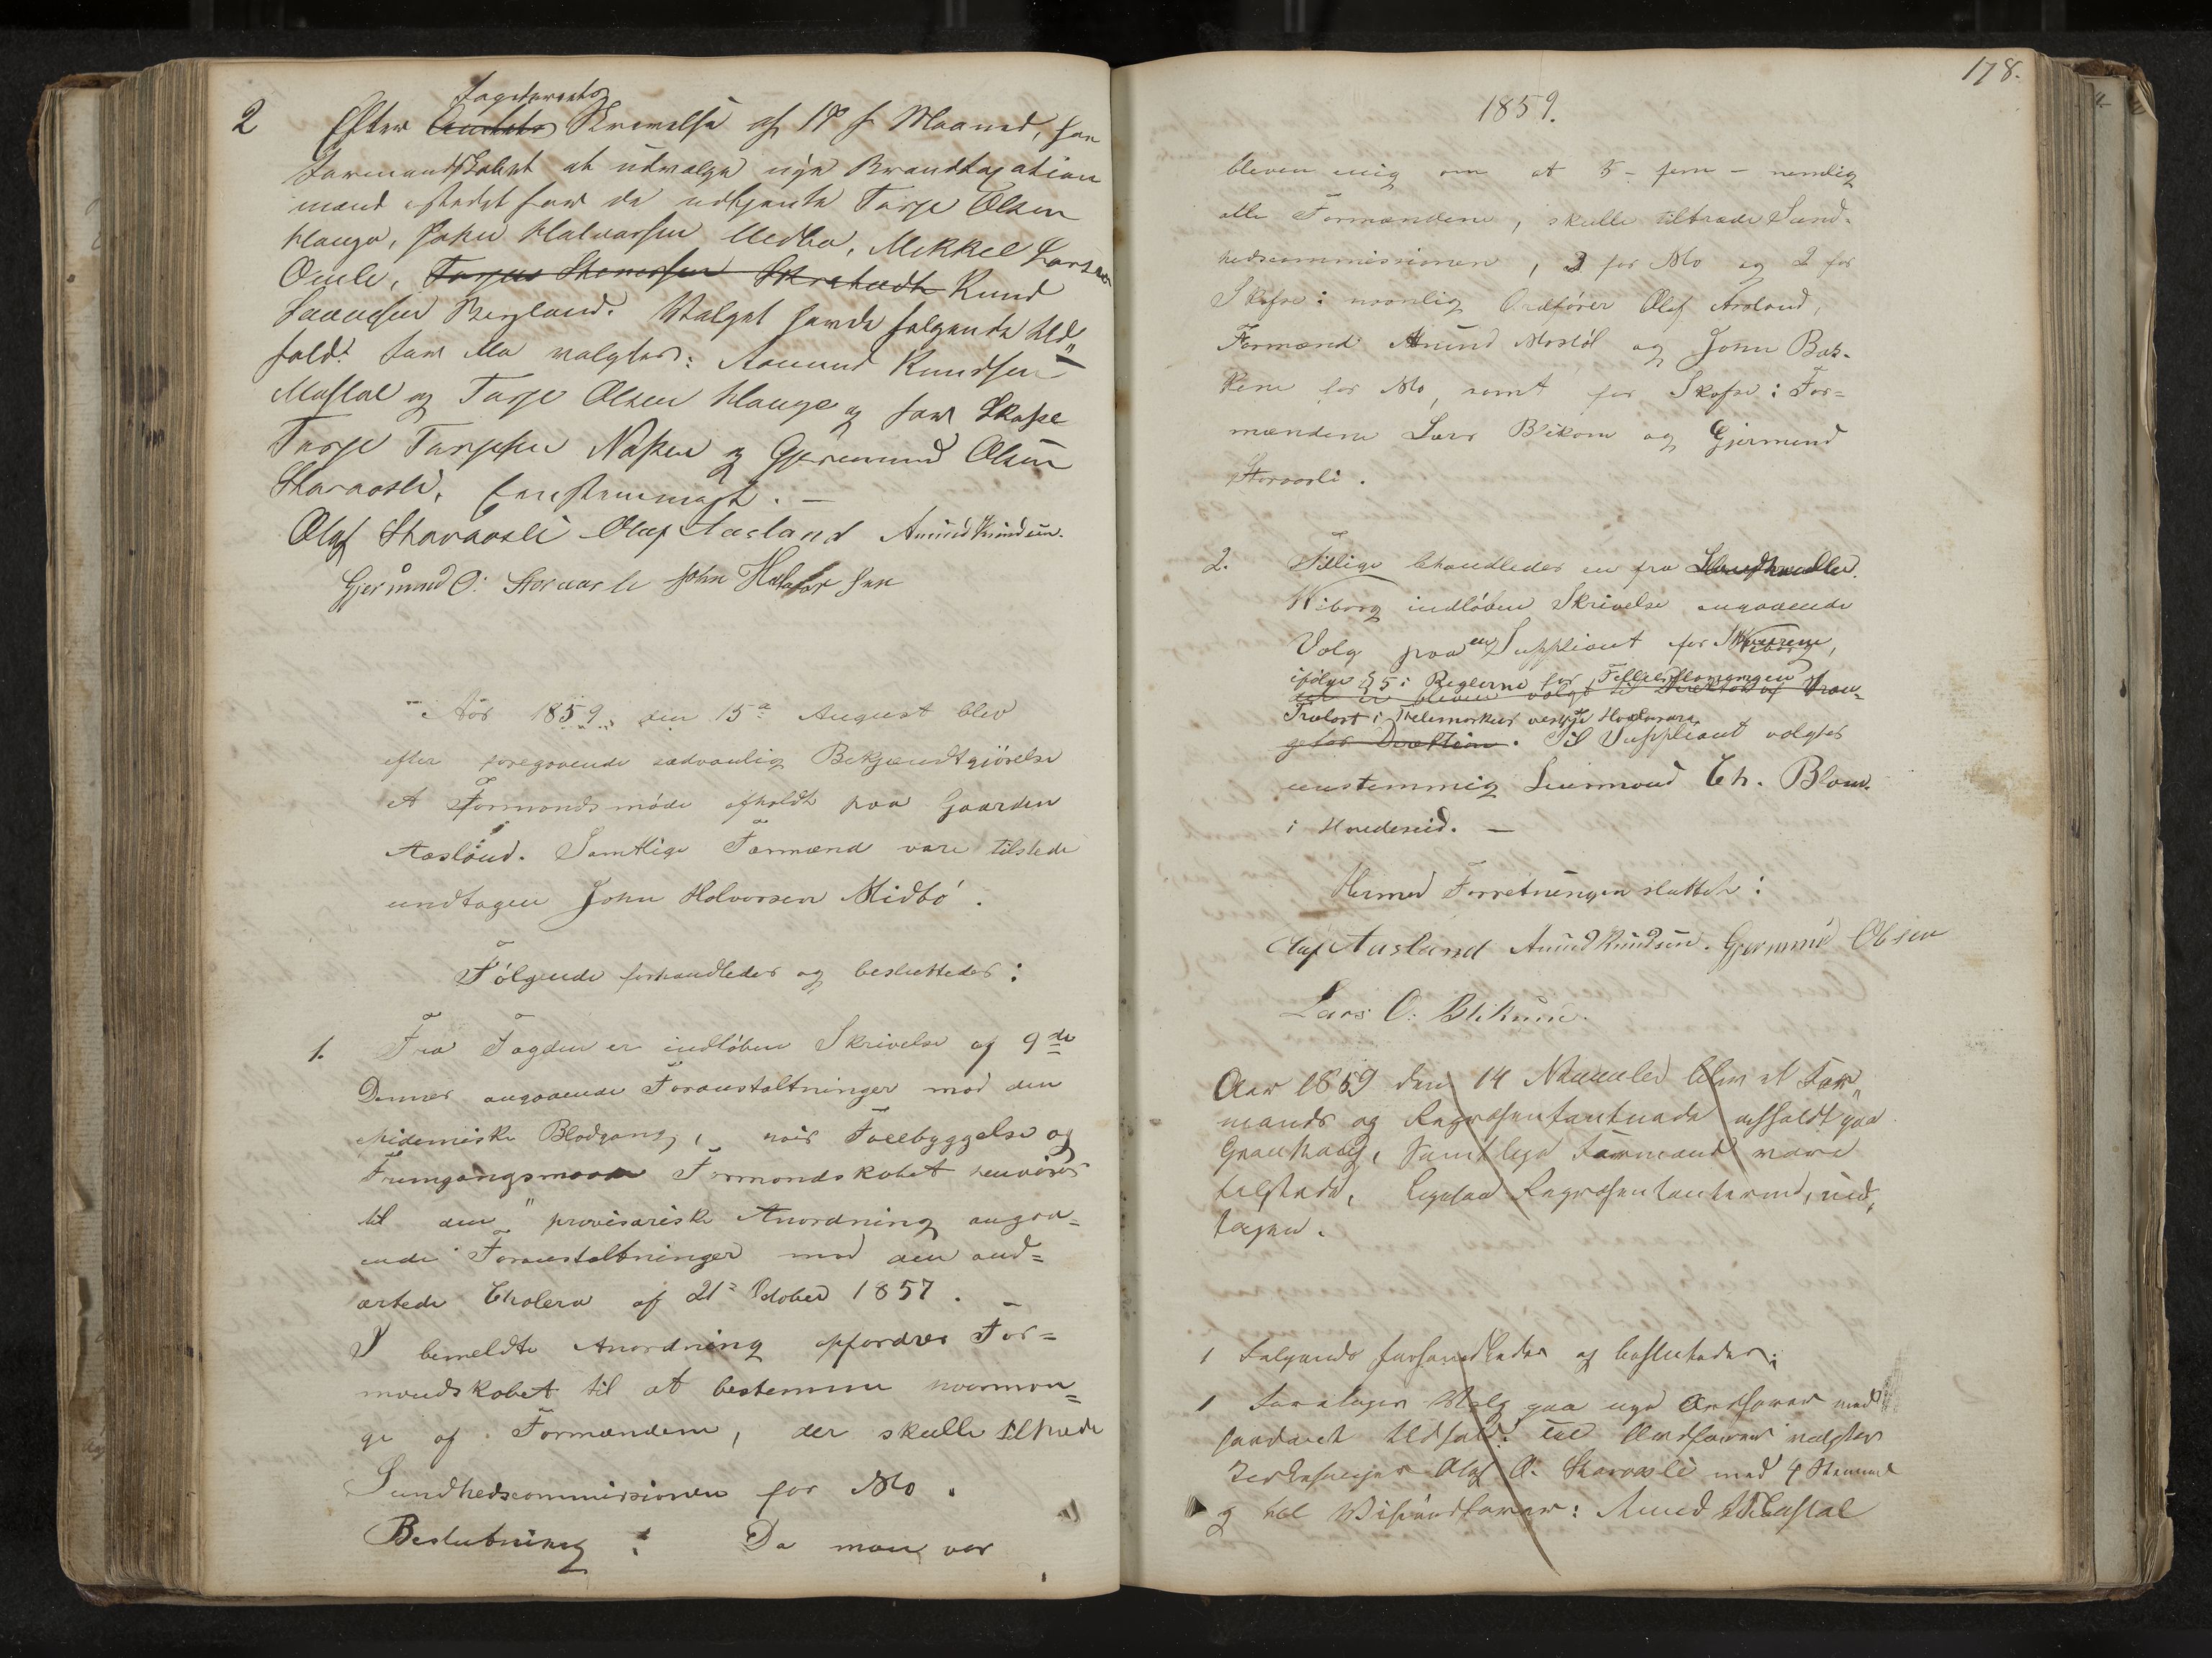 2 Efter Skrivelse af f. Maaned, har
Formandskabet at udvælge nye Brandtaxations
mænd istedet for de udtjente Tarje Olsen
Hauge, John Halvorsen Medbø, Mikkel Larsen
Omli, Knud
Berglund. Valget havde følgende Ud„
fald: for Mo valgtes: Aamund Knudsen
Mostøl og Tarje Olsen Hauge og for Skafse
Tarje Tarjesen Næsken og Gjermund Olsen
Storaasli. Eenstemmigt. —
Olaf Storaasli Olaf Aasland Amund Knudsen.
Gjermund O: Storaasli John Halvorsen
Aar 1859, den 15de August blev
efter foregaaende sædvanlig Bekjendtgjörelse
et Formandsmöde afholdt paa Gaarden
Aasland. Samtlige Formænd vare tilstede
undtagen John Halvorsen Midbö.
Fölgende forhandledes og besluttedes:
1. Fra Fogden er indlöben Skrivelse af 9de
Dennes angaaende Foranstaltninger mod den
epidemiske Blodgang, Forebyggelse og
Fremgangsmaade Formandskabet henvises
til den „provisoriske Anordning angaa=
ende Foranstaltninger mod den ond=
artede Cholera af 21de October 1857.
I bemeldte Anordning opfordres For=
mandskabet til at bestemme hvorman=
ge af Formændene, der skulle tiltræde
Sundhedscommissionen for Mo.
Beslutning: Da man var
178.
1859.
bleven enig om at 5 - fem - nemlig
alle Formændene, skulle tiltræde Sund-
hedscommissionen, 3 for Mo og 2 for
Skafse: navnlig Ordförer Olaf Aasland,
Formænd Amund Mostöl og John Bak-
kene for Mo, samt for Skafse: For=
mændene Lars Blikom og Gjermund
Storaasli.
2. Tillige behandledes en fra
Wiborg indlöben Skrivelse angaaende
Valg paa en Suppleant for
ifölge § 5 i Reglerne for
Til Suppleant valgtes
eenstemmig Lensmand Th. Blom.
i Hvideseid. —
Hermed Forretningen sluttet:
Olaf Aasland Amund Knudsen. Gjermund Olsen
Lars O: Blikum.
Aar 1859 den 14 November blev et For„
mands og Repræsentantmøde afholdt paa
Samtlige Formænd vare
tilstede, ligesaa Repræsentanterne, und„
tagen.
1 Følgende forhandledes og besluttedes:
1 Foretages Valg paa nye Ordfører med
saadant Udfald: til Ordfører valgtes
Olaf O. Storaasli med 4 Stemmer
og til Viseordfører: Amund Mostøl